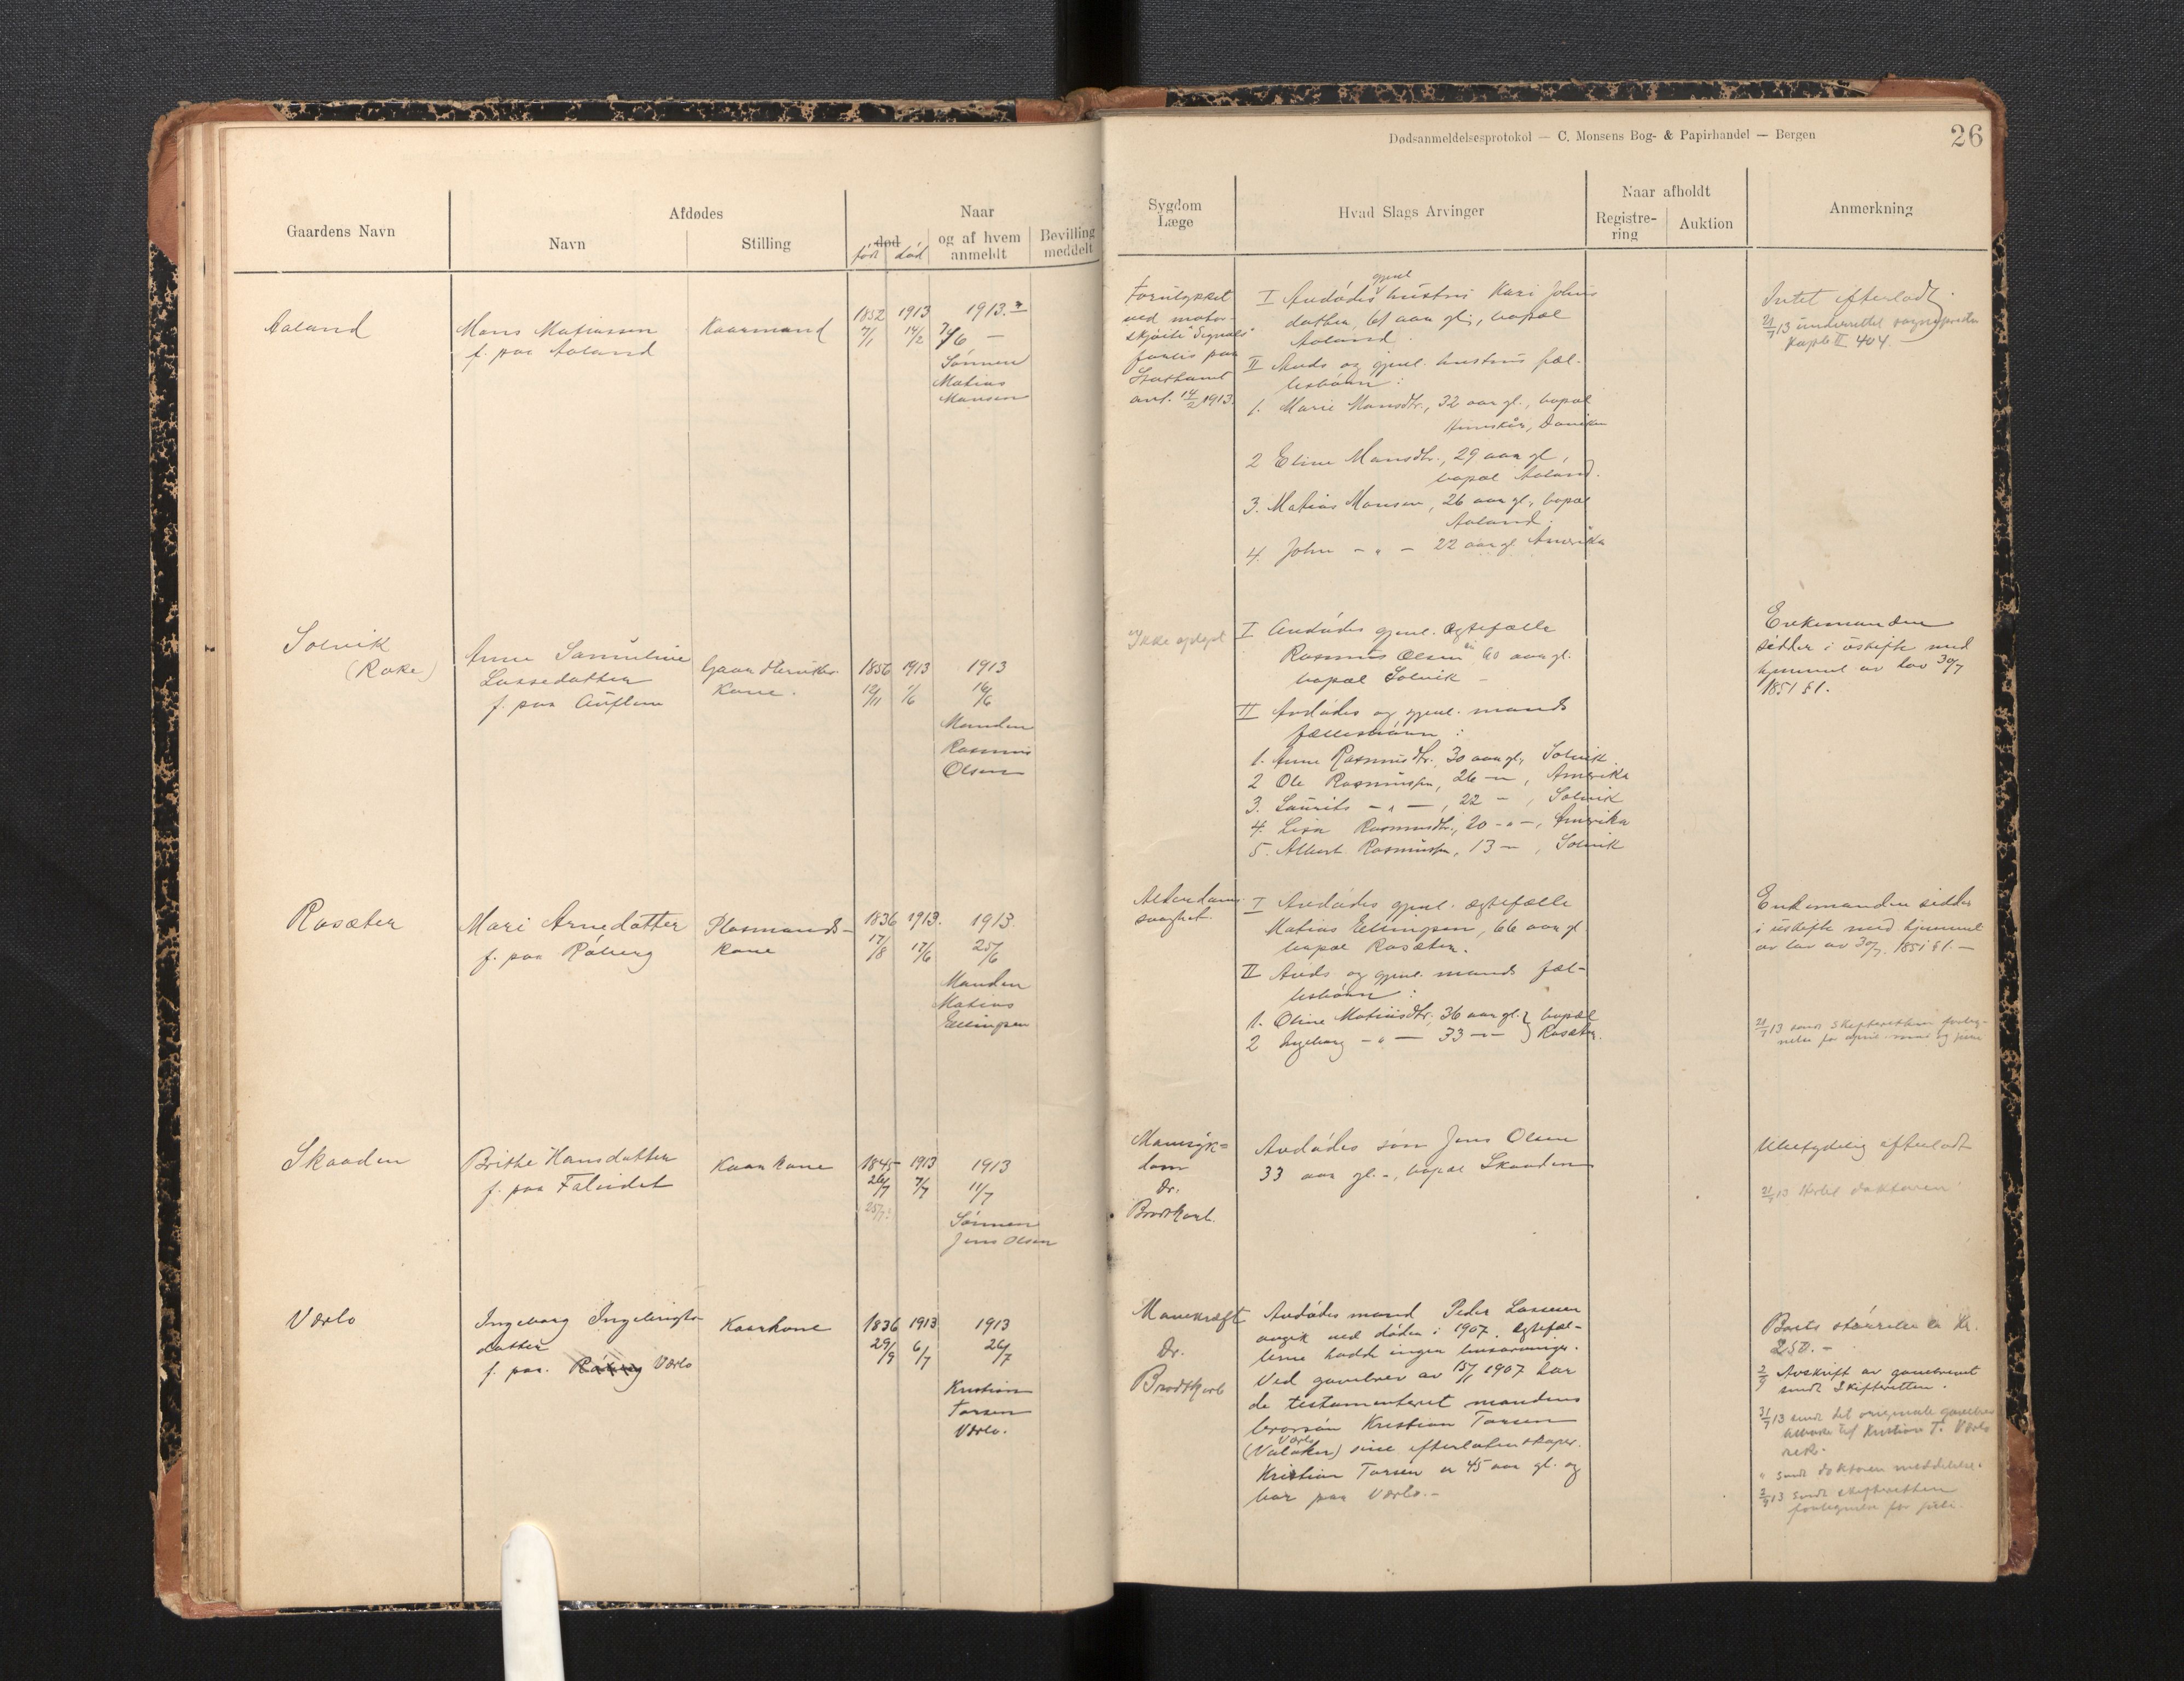 Dødsanmeldelsesprotokol — C. Monsens Bog- & Papirhandel — Bergen
26
Gaardens Navn
Afdødes
Navn
Stilling
Naar
død
født død
og af hvem
anmeldt
Bevilling
meddelt
Sygdom
Læge
Hvad Slags Arvinger
Naar afholdt
Registre-
ring
Auktion
Anmerkning
Aaland
Mons Matiassen
f. paa Aaland
Kaarmand
1852 1913
7/1 14/2
1913
7/6 —
Sønnen
Matias
Monsen
Forulykket
ved motor-
skjøite "Signal"
forlis paa
ant. 14/2 1913.
I Avdødes gjenl hustru Kari Johns
datter, 61 aar gl., bopæl
Aaland.
II Avds og gjenl. hustrus fæl-
lesbørn:
1. Marie Monsdtr., 32 aar gl., bopæl
2 Eline Monsdtr., 29 aar gl,
bopæl Aaland.
3. Matias Monsen, 26 aar gl., bopæl
Aaland.
4. John — " — 22 aar gl. Amerika
Intet efterladt
21/7 13 underrettet
Kopib II 404.
Solvik
(Rake)
Anne Samueline
Lassedatter
f. paa Auflem
Gaardbruker
Kone.
1856 1913
12/11 1/6
1913
16/6
Manden
Rasmus
Olsen
Ikke opgit
I Avdødes gjenl. Egtefælle
Rasmus Olsen, 60 aar gl.
bopæl Solvik —
II Avdødes og gjenl. mands
fællesbørn:
1. Anne Rasmusdtr. 30 aar gl, Solvik
2 Ole Rasmussen, 26 — " , Amerika
3. Laurits — " — , 22 " , Solvik
4. Lisa Rasmusdtr., 20 - " -, Amerika
5. Albert Rasmussen, 13 — , Solvik
Enkemanden
sidder i uskifte med
hjemmel av lov 30/7
1851 § 1.
Rosæter
Mari Arnedatter
f. paa Råberg
Plasmands-
kone
1836 1913.
17/8 17/6
1913.
25/6
Manden
Matias
Ellingsen
Alderdoms
svaghet.
I Avdødes gjenl. ægtefælle
Matias Ellingsen, 66 aar gl
bopæl Rosæter.
II Avds og gjenl. mands fæl-
lesbørn:
1. Oline Matiasdtr. 36 aar gl. } bopæl
2 Ingeborg — " — 33 — " — } Rosæter.
Enkemanden sidder
i uskifte med hjemmel
av lov av 30/7 1851 § 1. —
21/7 13 sendt Skifteretten forteg-
nelse for april mai og juni
Skaaden
Brithe Hansdatter
f. paa
Kaarkone
1845 1913
26/7 7/7
25/7?
1913
11/7
Sønnen
Jens Olsen
Mavesyk=
dom
Dr.
Brodtkorb.
Avdødes søn Jens Olsen
33 aar gl. -, bopæl Skaaden
Ubetydelig efterladt
Værlo
Ingeborg Ingebrigts-
datter
f. paa. Værlo
Kaarkone
1836 1913
29/9 6/7
1913
26/7
Kristian
Tarsen
Værlo.
Mavekræft
Dr.
Brodtkorb
Avdødes mand Peder Lassesen
avgik ved døden i 1907. Egtefæl-
lerne hadde ingen livsarvinger.
Ved gavebrev av 15/1 1907 har
de testamenteret mandens
brorsøn Kristian Tarsen
Værlo
(Valaker) sine efterladenskaper.
Kristian Tarsen er 45 aar gl. og
bor paa Værlo. —
Boets størrelse er Kr.
250. —
2/9 Avskrift av gavebrevet
sendt Skifteretten.
31/7 13 sendt det originale gavebrev
tilbake til Kristian T. Værlo
rek.
" sendt doktoren meddelelse.
2/9 13 sendt skifteretten
fortegnelse for juli.